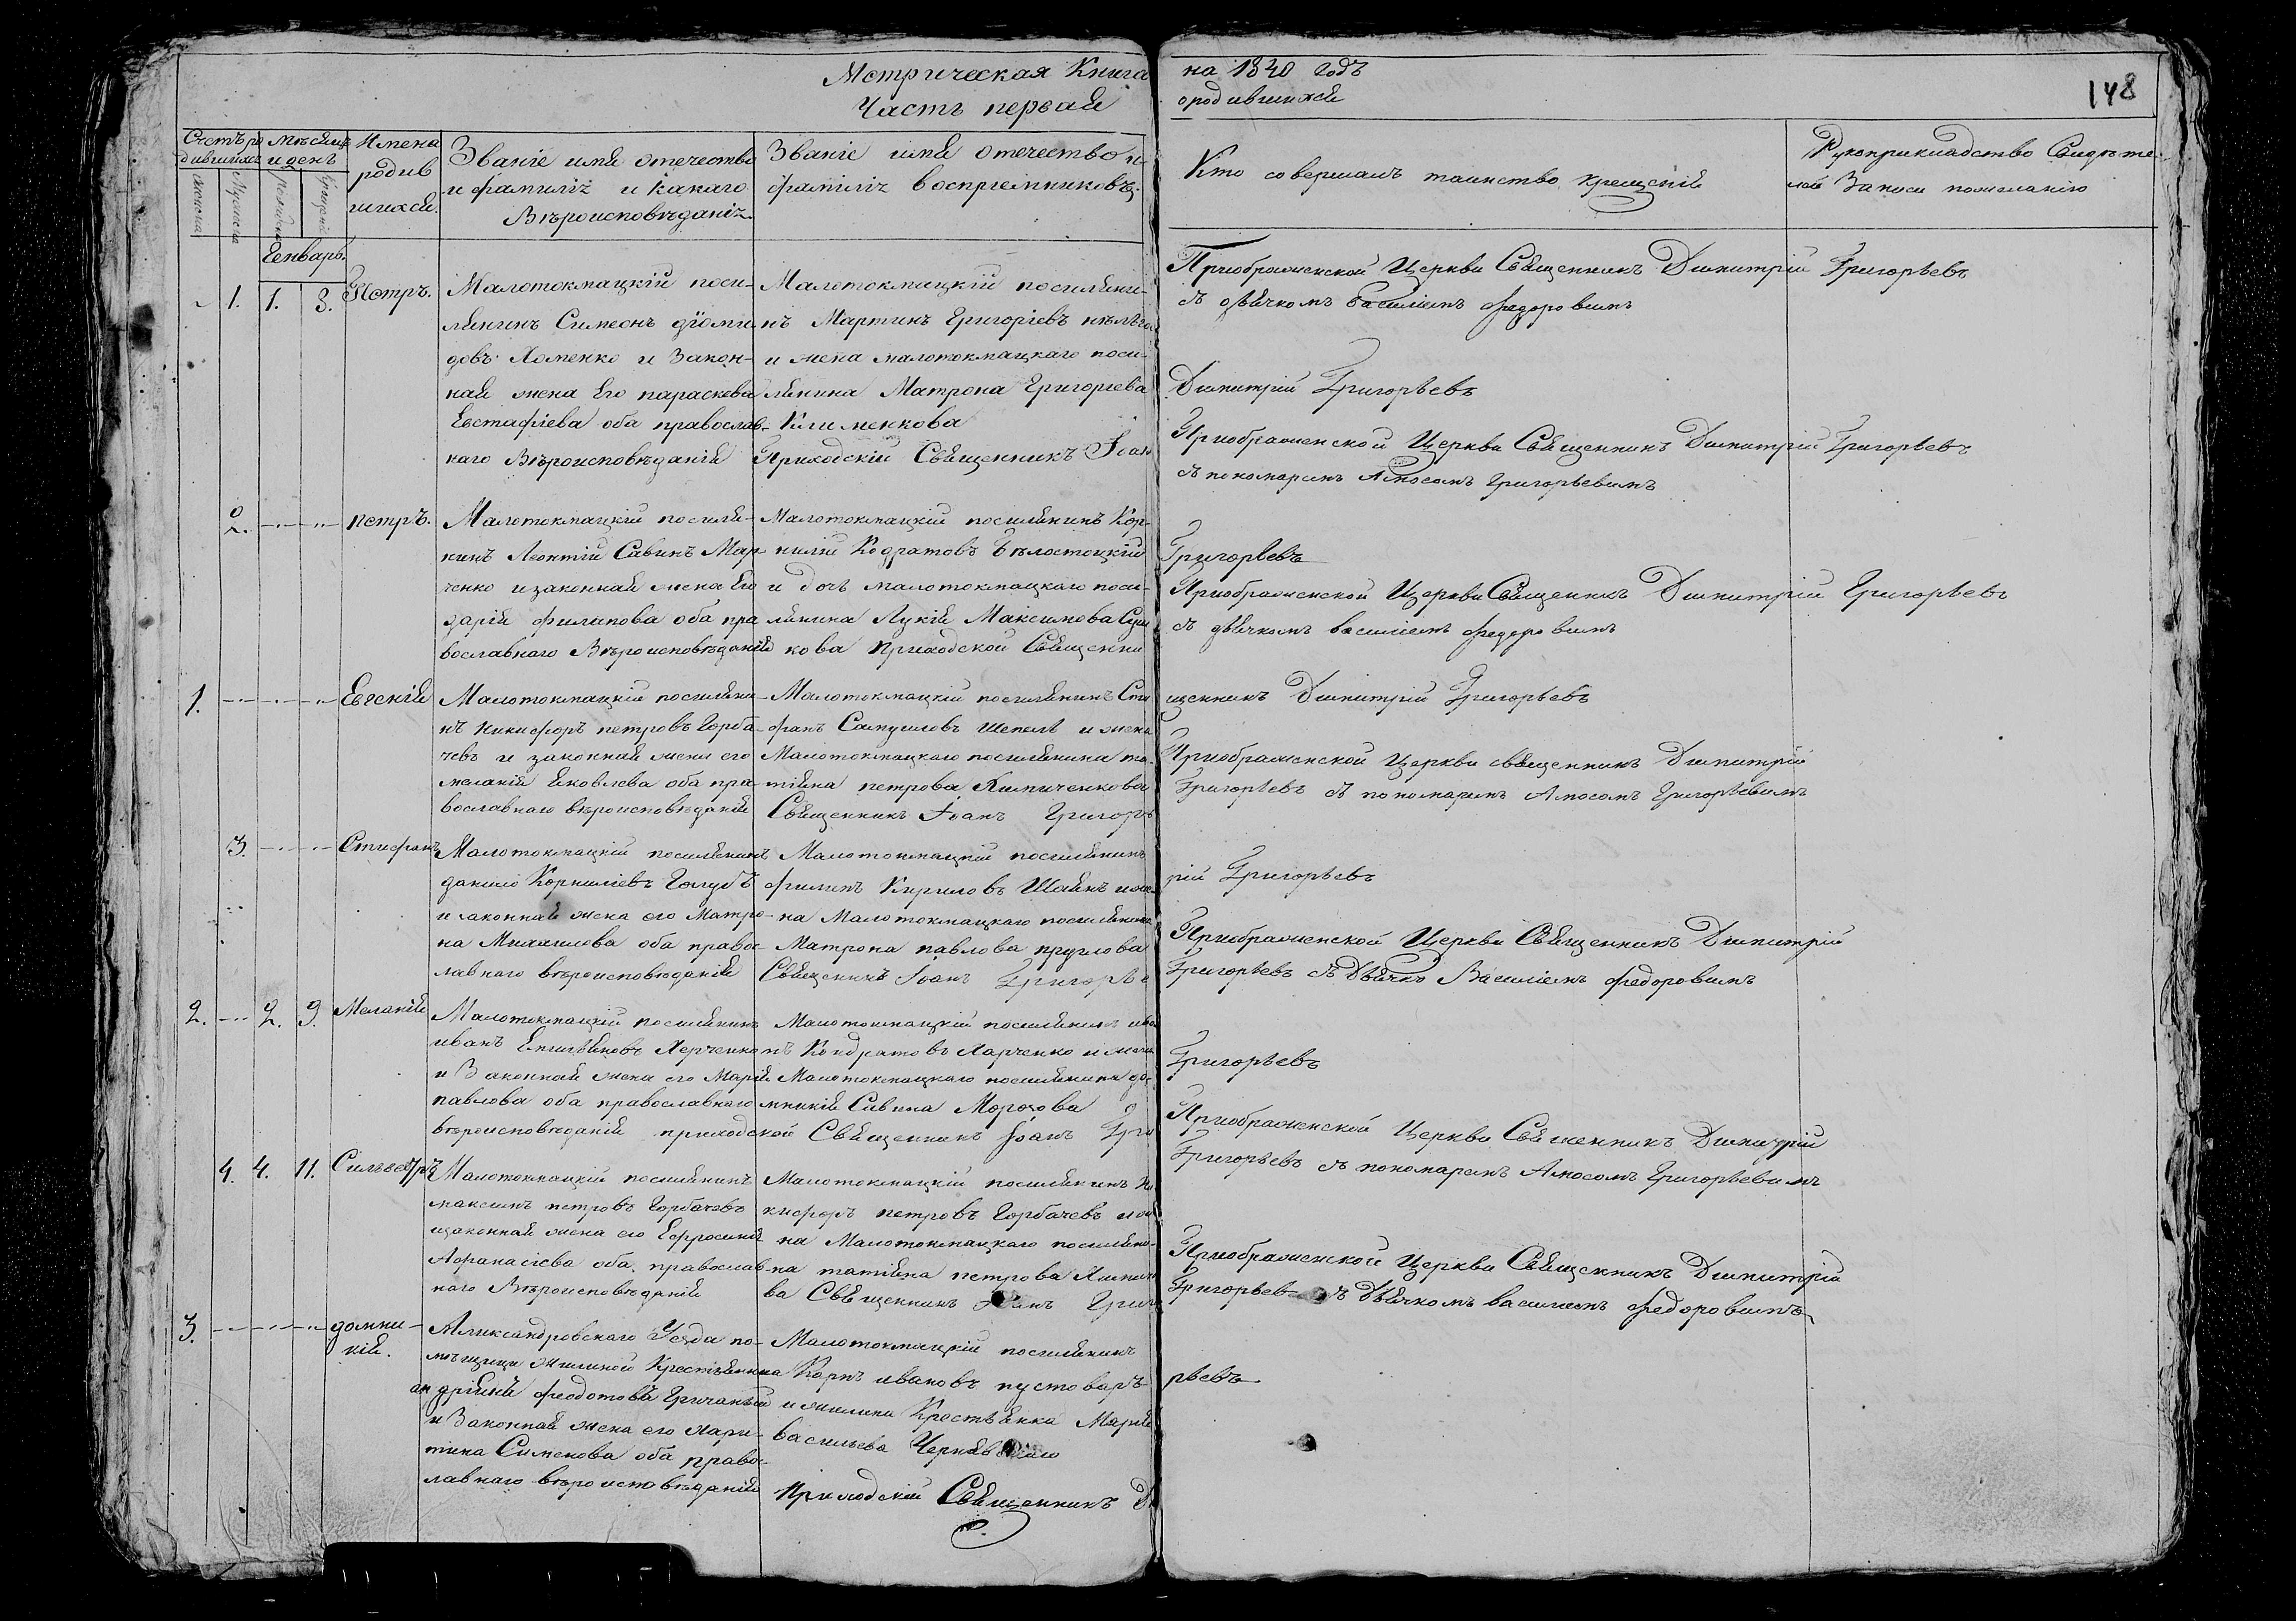 Метрическая Книга на 1840 годъ
Часть первая о родившихся
148
Счетъ ро
дившихъ
Мѣсяцъ
и день
Имена
родив
шихся.
Званіе имя отечество
и фамилія и какаго
Вѣроисповѣданія
Званіе имя отечество и
фамилія воспріемниковъ
Кто совершалъ таинство крещенія
Рукоприкладство Свидѣте
лей Записи пожеланію
Генварь.
1. 1. 3. Петръ.
Малотокмацкій посе-
лянинъ Симеонъ діоми
довъ Хоменко и Закон-
ная жена Его параскева
Евстафіева оба православ-
наго Вѣроисповѣданія
Малотокмацкій поселяни-
нъ Мартинъ Григоріевъ
и жена малотокмацкаго посе-
лянина Матрона Григоріева
Клименкова
Приходскій Священникъ Іоан
Приображенской Церкви Священникъ Димитрій Григорьевъ
съ дьячкомъ Василіемъ Федоровымъ
Димитрій Григорьевъ
2. петръ.
Малотокмацкій поселя-
нинъ Леонтій Савинъ Мар
ченко и законная жена Его
дарія филипова оба пра
вославнаго Вѣроисповѣданія
Малотокмацкій поселянинъ Кор-
нилій Кодратовъ Бѣлостоцкій
и дочь малотокмацкаго посе-
лянина Лукія Максимова
кова Приходской Священни
Приображенской Церкви Священникъ Димитрій Григорьевъ
съ пономаремъ Амосомъ Григорьевымъ
Григорьевъ
1. Евгенія
Малотокмацкій поселяни-
нъ никифоръ петровъ Горба-
чевъ и законная жена его
меланія Яковлева оба пра-
вославнаго вѣроисповѣданія
Малотокмацкій поселянинъ Сте
фанъ Самуиловъ Шепель и жена
Малотокмацкаго поселянина та-
тіяна петрова Химиченкова
Священникъ Іоанъ Григорь
Приображенской Церкви Священникъ Димитрій Григорьевъ
съ дьячкомъ василіемъ федоровымъ
щенникъ Димитрій Григорьевъ
3. Стифанъ
Малотокмацкій поселянинъ
данило Корниліевъ Голубъ
и законная жена его Матро-
на Михаилова оба правос-
лавнаго вѣроисповѣданія
Малотокмацкій поселянинъ
филипъ Кириловъ Шаянъ и же-
на Малотокмацкаго поселянина
Матрона павлова пруглова
Священникъ Іоанъ Григорье
Приображенской Церкви священникъ Димитрій
Григорьевъ съ пономаремъ Амосомъ Григорьевымъ
рій Григорьевъ
2. 2. 9. Меланія
Малотокмацкій поселянинъ
иванъ Емильяновъ Харченко
и Законная жена его Марія
павлова оба православнаго
вѣроисповѣданія
Малотокмацкій поселянинъ ива
нъ Кондратовъ Харченко и жена
Малотокмацкаго поселянина до-
мникія Савина Морозова
приходской Священникъ Іоанъ Гри
Приображенской Церкви Священникъ Димитрій
Григорьевъ съ Дьячко Василіемъ федоровымъ
Григорьевъ
4. 4. 11. Сильвестръ
Малотокмацкій поселянинъ
максимъ петровъ Горбачевъ
изаконная жена его Ефросинія
Афанасіева оба православ-
наго Вѣроисповѣданія
Малотокмацкій поселянинъ Ни
кифоръ петровъ Горбачевъ и же
на Малотокмацкаго поселяни-
на татіяна петрова Химиче
ва Священникъ Іоанъ Григо
Приображенской Церкви Священникъ Димитрій
Григорьевъ съ пономаремъ Амосомъ Григорьевымъ
3. домни-
кія.
Александровскаго Уезда по-
мѣщицы Жилиной Крестьянина
андріяна феодотова Гричаный
и Законная жена его хари-
тина Сименова оба правос-
лавнаго вѣроисповѣданія
Малотокмацкій поселянинъ
Карпъ ивановъ пустоваръ
и жилина Крестьянка Марія
васильева
Приходскій Священникъ
Приображенской Церкви Священникъ Димитрій
Григорьевъ съ Дьячкомъ василіемъ федоровымъ
рьевъ